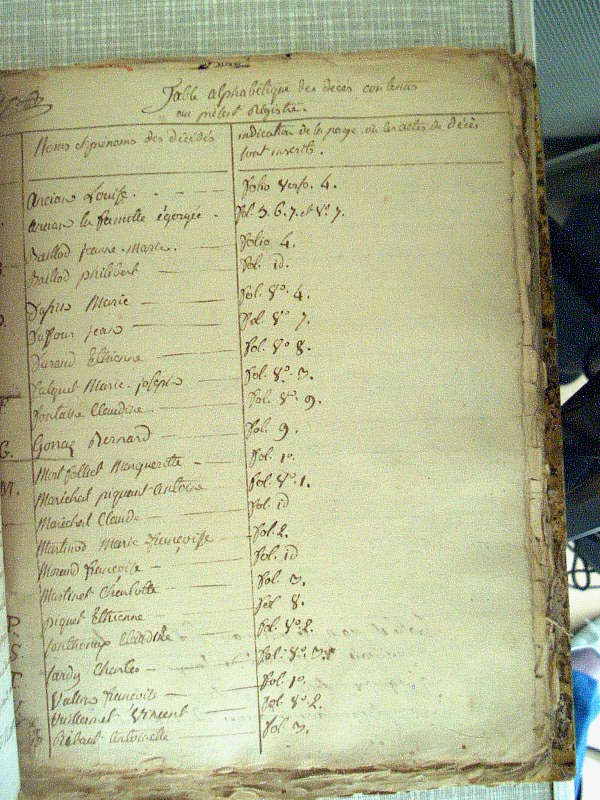 Table alphabétique des décès contenus
au présent Registre.
Noms et prénoms des décédés
indication de la page, où les actes de décès
sont inscrits.
Ancian Louise. folio verso. 4.
Ancian la famille égorgée. fol. 5. 6. 7. et Vo. 7.
Baillod jeanne-marie. folio 4.
Baillod philibert fol. id.
Marie fol. Vo. 4.
Dufour jean fol. Vo 7.
Durand Ethienne fol. Vo 8.
Falquet Marie-josephe fol. Vo. 3.
fontaine Claudine fol. Vo. 9.
G. Bernard fol. 9.
Marguerite fol. 1o.
M. Marechal piquant antoine fol. Vo. 1.
Marechal Claude fol. id
Martinod Marie françoise fol. 2.
Morand françoise fol. id
Martinet Charlotte fol. 3.
piquet Ethienne fol. 8.
Claudine fol. Vo. 2.
Charles fol. Vo. 3.
françoise fol. 1o.
Vuillermet Vincent fol. Vo. 2.
antoinette fol. 3.